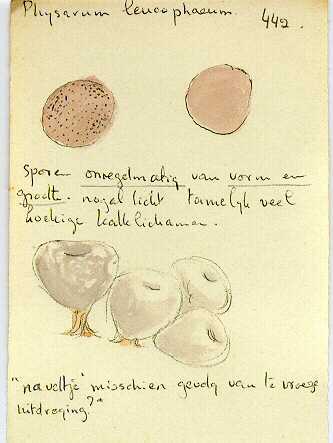 Physarum leucophaeum. 442.
Sporen onregelmatig van vorm en
grootte. nogal licht tamelyk veel
hoekige kalklichamen.
"naveltje" misschien gevolg van te vroege
uitdroging?"